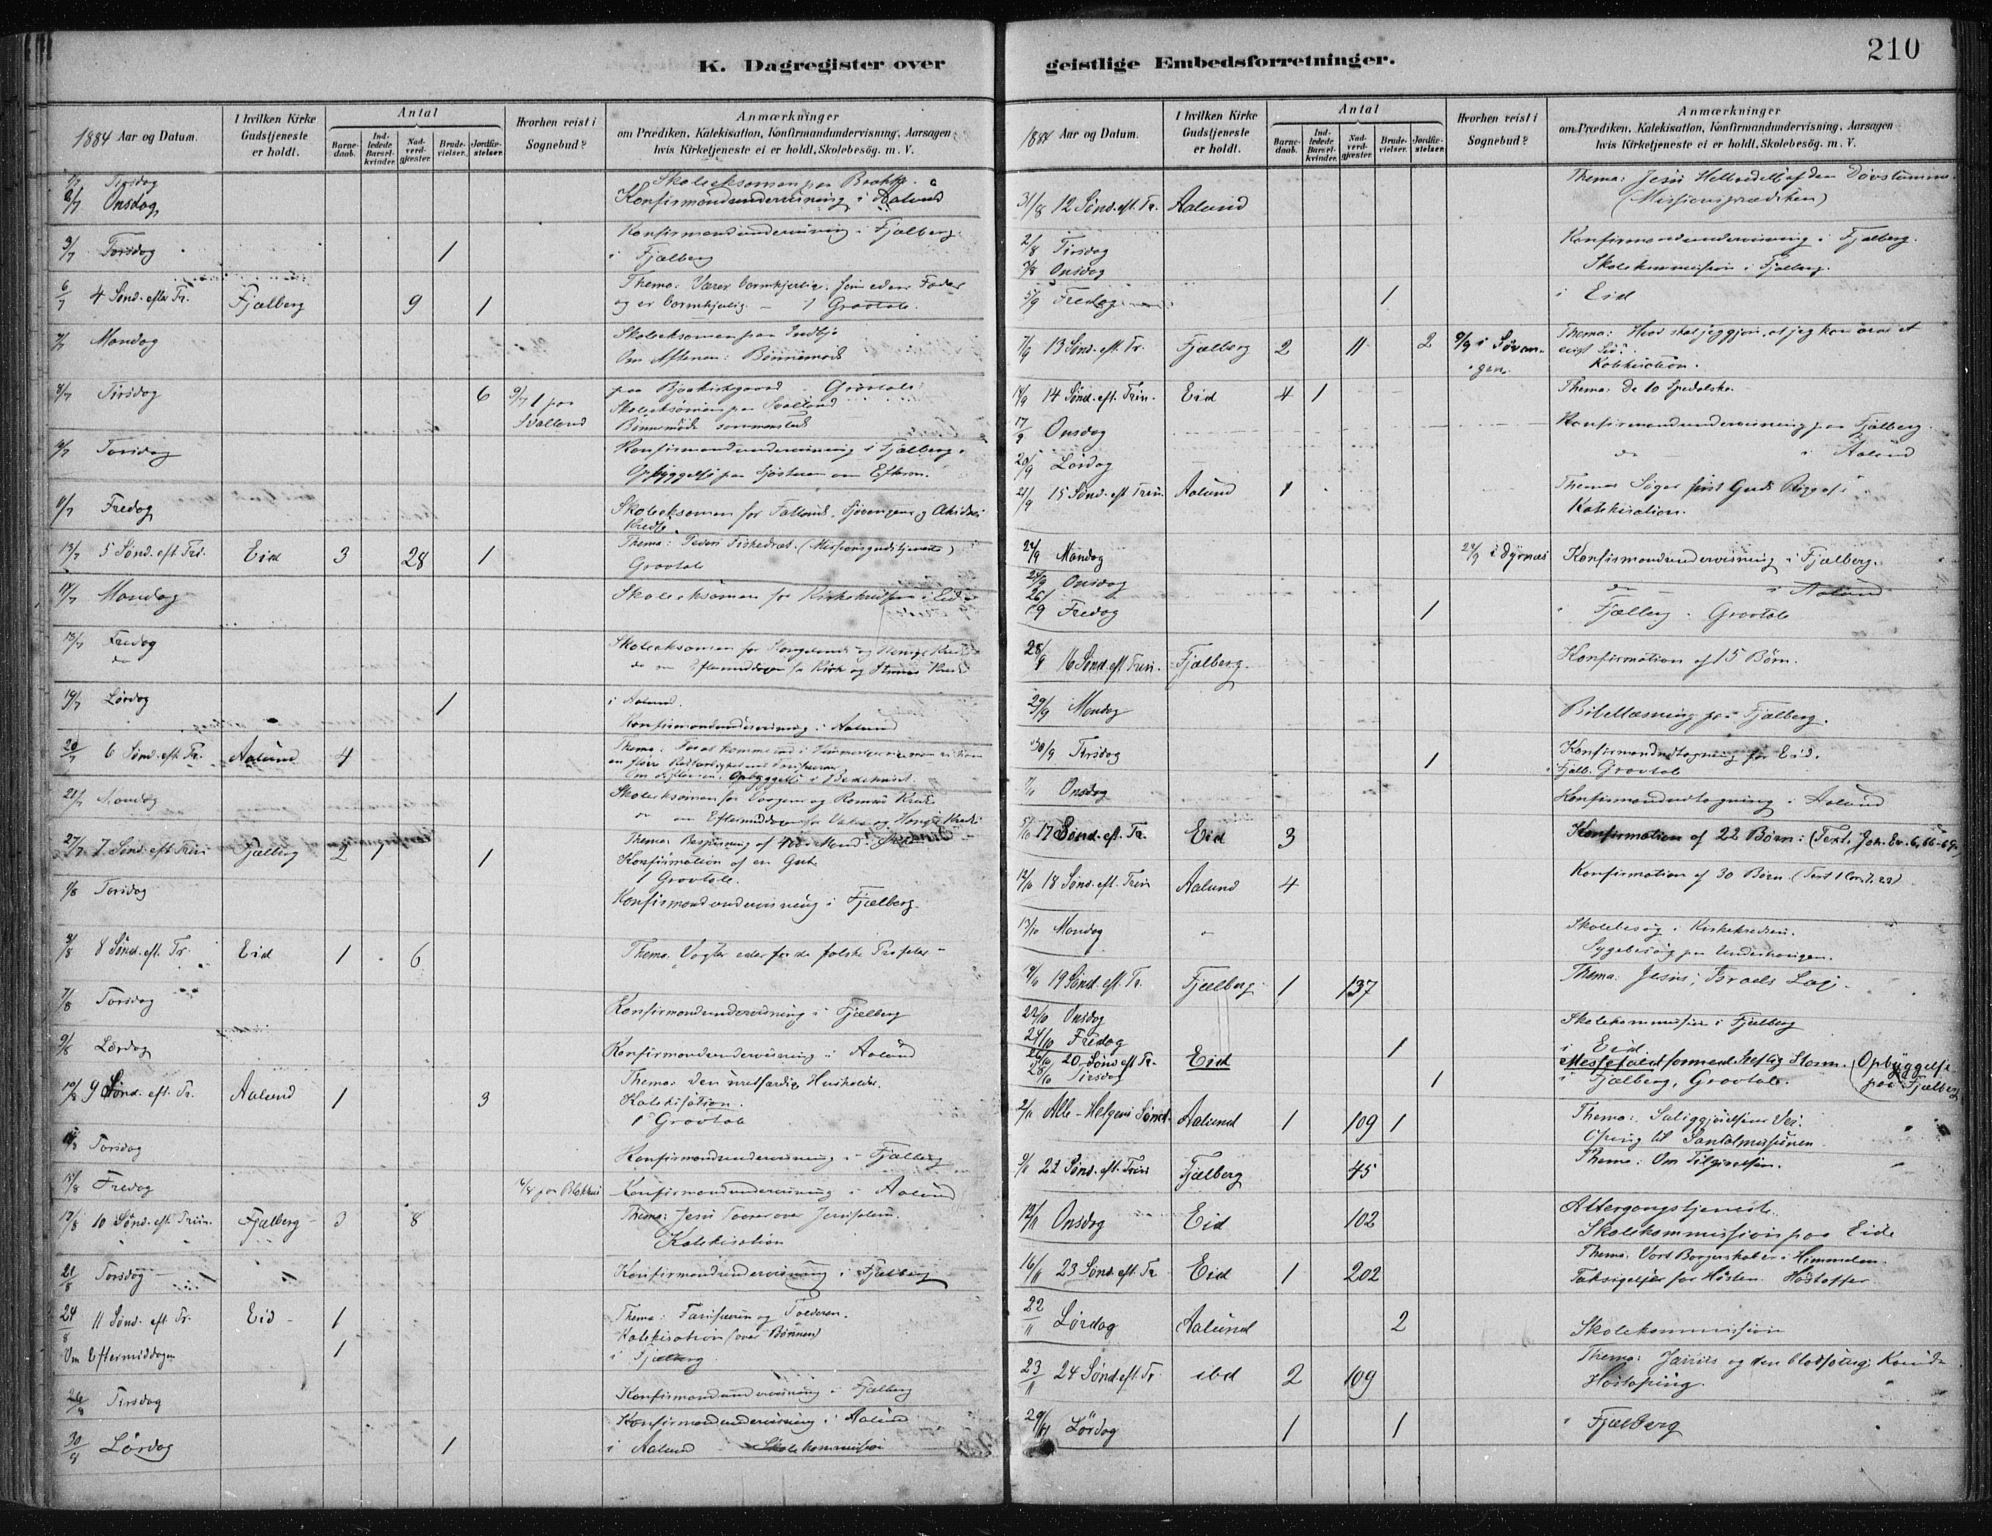 K. Dagregister over
geistlige Embedsforretninger.
210
1884 Aar og Datum.
I hvilken Kirke Gudstjeneste er holdt.
Antal
Barnedaab.
Indledede Barselkvinder.
Nadverdgjester
Brudevielser.
Jordfæstelser.
Hvorhen reist i Sognebud?
Anmærkninger
om Prædiken, Katekisation, Konfirmandundervisning, Aarsagen
hvis Kirketjeneste ei er holdt, Skolebesög. m. V.
Tirsdag Skoleeksamen paa
2/7 Onsdag Konfirmandundervisning i Aalund
3/7 Torsdag 1 Konfirmandundervisning i Fjælberg.
i Fjelberg
6/7 4 Sønd. efter Tr. Fjælberg 9 1 Thema: Værer barmhjertige, som eders Fader
og er barmhjertig – 1 Gravtale.
7/7 Mandag Skoleeksamen paa
Om Aftenen: Bønnemøde
8/7 Tirsdag 6 Gravtale
Skoleeksamen paa
Bønnemøde sammensteds
10/7 Torsdag Konfirmandundervisning i Fjælberg.
Opbyggelse paa om Efterm.
11/7 Fredag Skoleeksamen for
Kredse
13/7 5 Sønd. eft. Tr. Eid 3 28 1 Thema: Peders Fiskedræt. (Missionsgudstjeneste)
Gravtale
14/7 Mandag Skoleeksamen for Kirkekredsen i Eid
18/7 Fredag Skoleeksamen for
19/7 Lørdag 1 i Aalund.
Konfirmandundervisning i Aalund
20/7 6 Sønd. eft. Tr. Aalund 4 Thema:
Om Aftenen Opbyggelse i
21/7 Mandag Skoleeksamen for
27/7 7 Sønd. eft. Trin Fjælberg 2 1 1 Thema: Bespisning af 4000 Mænd i
Konfirmation af en Gut
1 Gravtale.
Torsdag Konfirmandundervisning i Fjælberg.
3/8 8 Sønd. eft. Tr. Eid 1 6 Thema: Vogter eder for de falske Profeter
7/8 Torsdag Konfirmandundervisning i Fjælberg
9/8 Lørdag Konfirmandundervisning i Aalund
10/8 9 Sønd. eft. Tr. Aalund 1 3 Thema: Den uretfærdige Husholder.
Katekisation.
1 Gravtale
Torsdag Konfirmandundervisning i Fjælberg
15/8 Fredag Konfirmandundervisning i Aalund
17/8 10 Sønd. eft. Trin. Fjælberg 3 8 Thema: Jesu Taarer over Jerusalem.
Katekisation
21/8 Torsdag Konfirmandundervisning i Fjælberg
24/8 11 Sønd. eft. Tr. Eid 1 Thema: Farisæeren og Tolderen.
Katekisation over Bønnen
Om Eftermiddagen 1 i Fjælberg.
26/8 Tirsdag Konfirmandundervisning i Fjælberg
Konfirmandundervisning i Aalund
30/8 Lørdag 1 i Aalund Skolekommission
1884 Aar og Datum.
I hvilken Kirke Gudstjeneste er holdt.
Antal
Barnedaab.
Indledede Barselkvinder.
Nadverdgjester
Brudevielser.
Jordfæstelser.
Hvorhen reist i Sognebud?
Anmærkninger
om Prædiken, Katekisation, Konfirmandundervisning, Aarsagen
hvis Kirketjeneste ei er holdt, Skolebesög. m. V.
31/8 12 Sønd. eft. Tr. Aalund Thema: Jesu Helbredelse af den Døvstumme
(Missionsprædiken)
Tirsdag Konfirmandundervisning i Fjælberg.
Onsdag Skolekommission i Fjælberg.
5/9 Fredag 1 i Eid
7/9 13 Sønd. eft. Tr. Fjælberg 2 11 2 Thema: Hvad skal jeg gjøre, at jeg kan arve et
evigt Liv?
Katekisation.
14/9 14 Sønd. eft. Trin. Eid 4 1 Thema: De 10 Spedalske.
17/9 Onsdag Konfirmandundervisning paa Fjælberg.
20/9 Lørdag do i Aalund
21/9 15 Sønd. eft. Trin. Aalund 1 Thema: Søger først Guds Rige
Katekisation.
22/9 Mandag Konfirmandundervisning i Fjælberg.
24/9 Onsdag i Aalund
26/9 Fredag 1 i Fjælberg. Gravtale
28/9 16 Sønd. eft. Trin. Fjælberg. Konfirmation af 15 Børn.
29/9 Mandag Bibellæsning paa Fjælberg.
30/9 Tirsdag 1 Konfirmandudtagning for Eid.
i Fjælb. Gravtale
Onsdag Konfirmandudtagning i Aalund
5/10 17 Sønd. eft. Tr. Eid 3 Konfirmation af 22 Børn: (Text. Joh. Ev. 6, 66-69)
12/10 18 Sønd. eft. Trin Aalund 4 Konfirmation af 30 Børn
13/10 Mandag Skolebesøg i Kirkekredsen.
Sygebesøg paa
19/10 19 Sønd. eft. Tr. Fjælberg 1 137 Thema: Jesus, Israels
22/10 Onsdag Skolekommission i Fjælberg
24/10 Fredag 1 i Eid
26/10 20 Sønd. eft. Tr. Eid Messefald formedelst heftig Storm. (Opbyggelse paa Fjælberg)
28/10 Tirsdag 1 i Fjælberg, Gravtale.
2/11 Alle-Helgens Sønd. Aalund 1 109 1 Thema: Saliggjørelsens Vei.
Ofring til Santalmissionen.
9/11 22 Sønd. eft. Trin Fjælberg 45 Thema: Om Tilgivelsen.
12/11 Onsdag Eid 102 Altergangstjeneste.
Skolekommission paa Eide
16/11 23 Sønd. eft. Tr Eid 1 202 Thema: Vort Borgerskab er i Himmelen.
Taksigelse for Høsten. Høstoffer.
22/11 Lørdag Aalund 2 Skolekommission
23/11 24 Sønd. eft. Tr. ibd 2 109 Thema: Jairus og den blodsottige Kvinde
Høstofring.
29/11 Lørdag 1 1 i Fjælberg